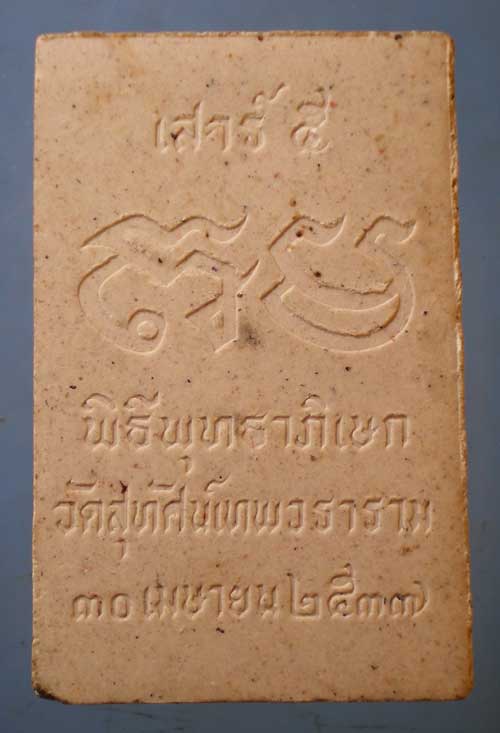 เสาร์ ๕
พิธีพุทธาภิเษก
วัดสุทัศน์เทพวราราม
๓๐ เมษายน ๒๕๓๗